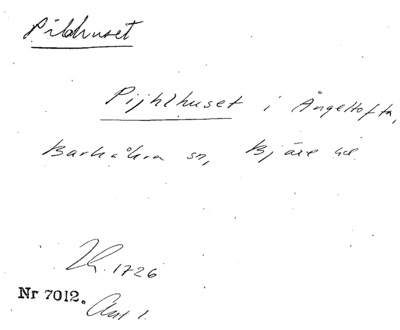 Pildhuset
Pijhlhuset i Ängeltofta,
Barkåkra sn, Bjäre hd
1726
Nr 7012.